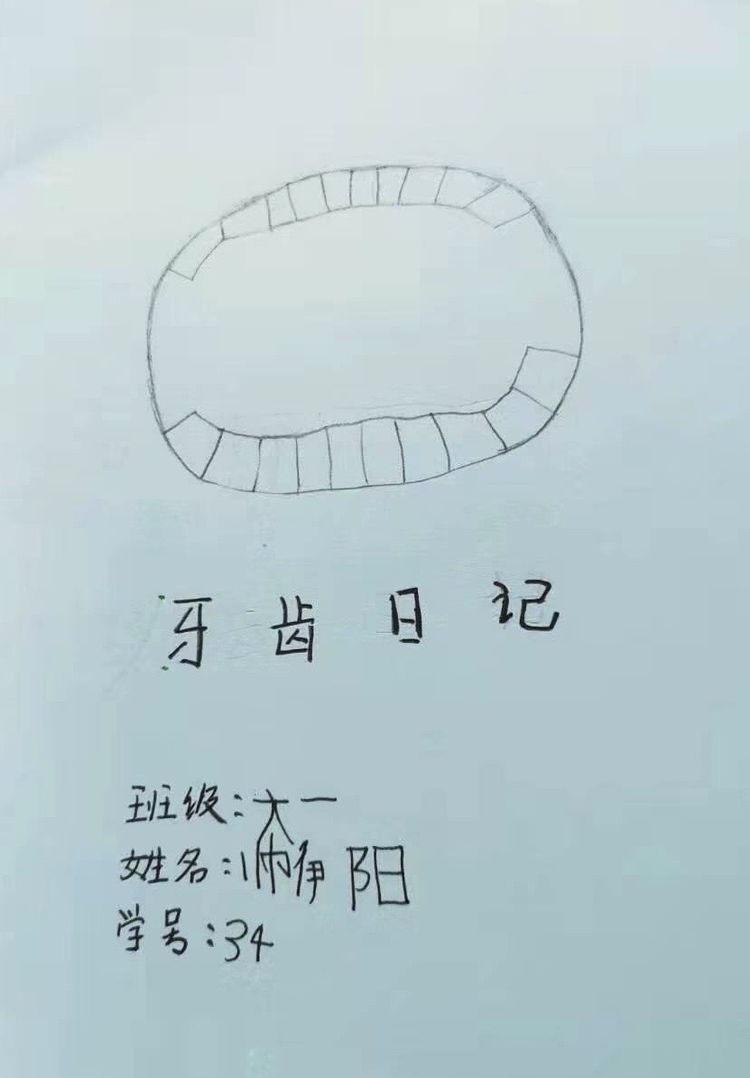 牙齿日记
班级:大一
姓名:帅伊阳
学号:34